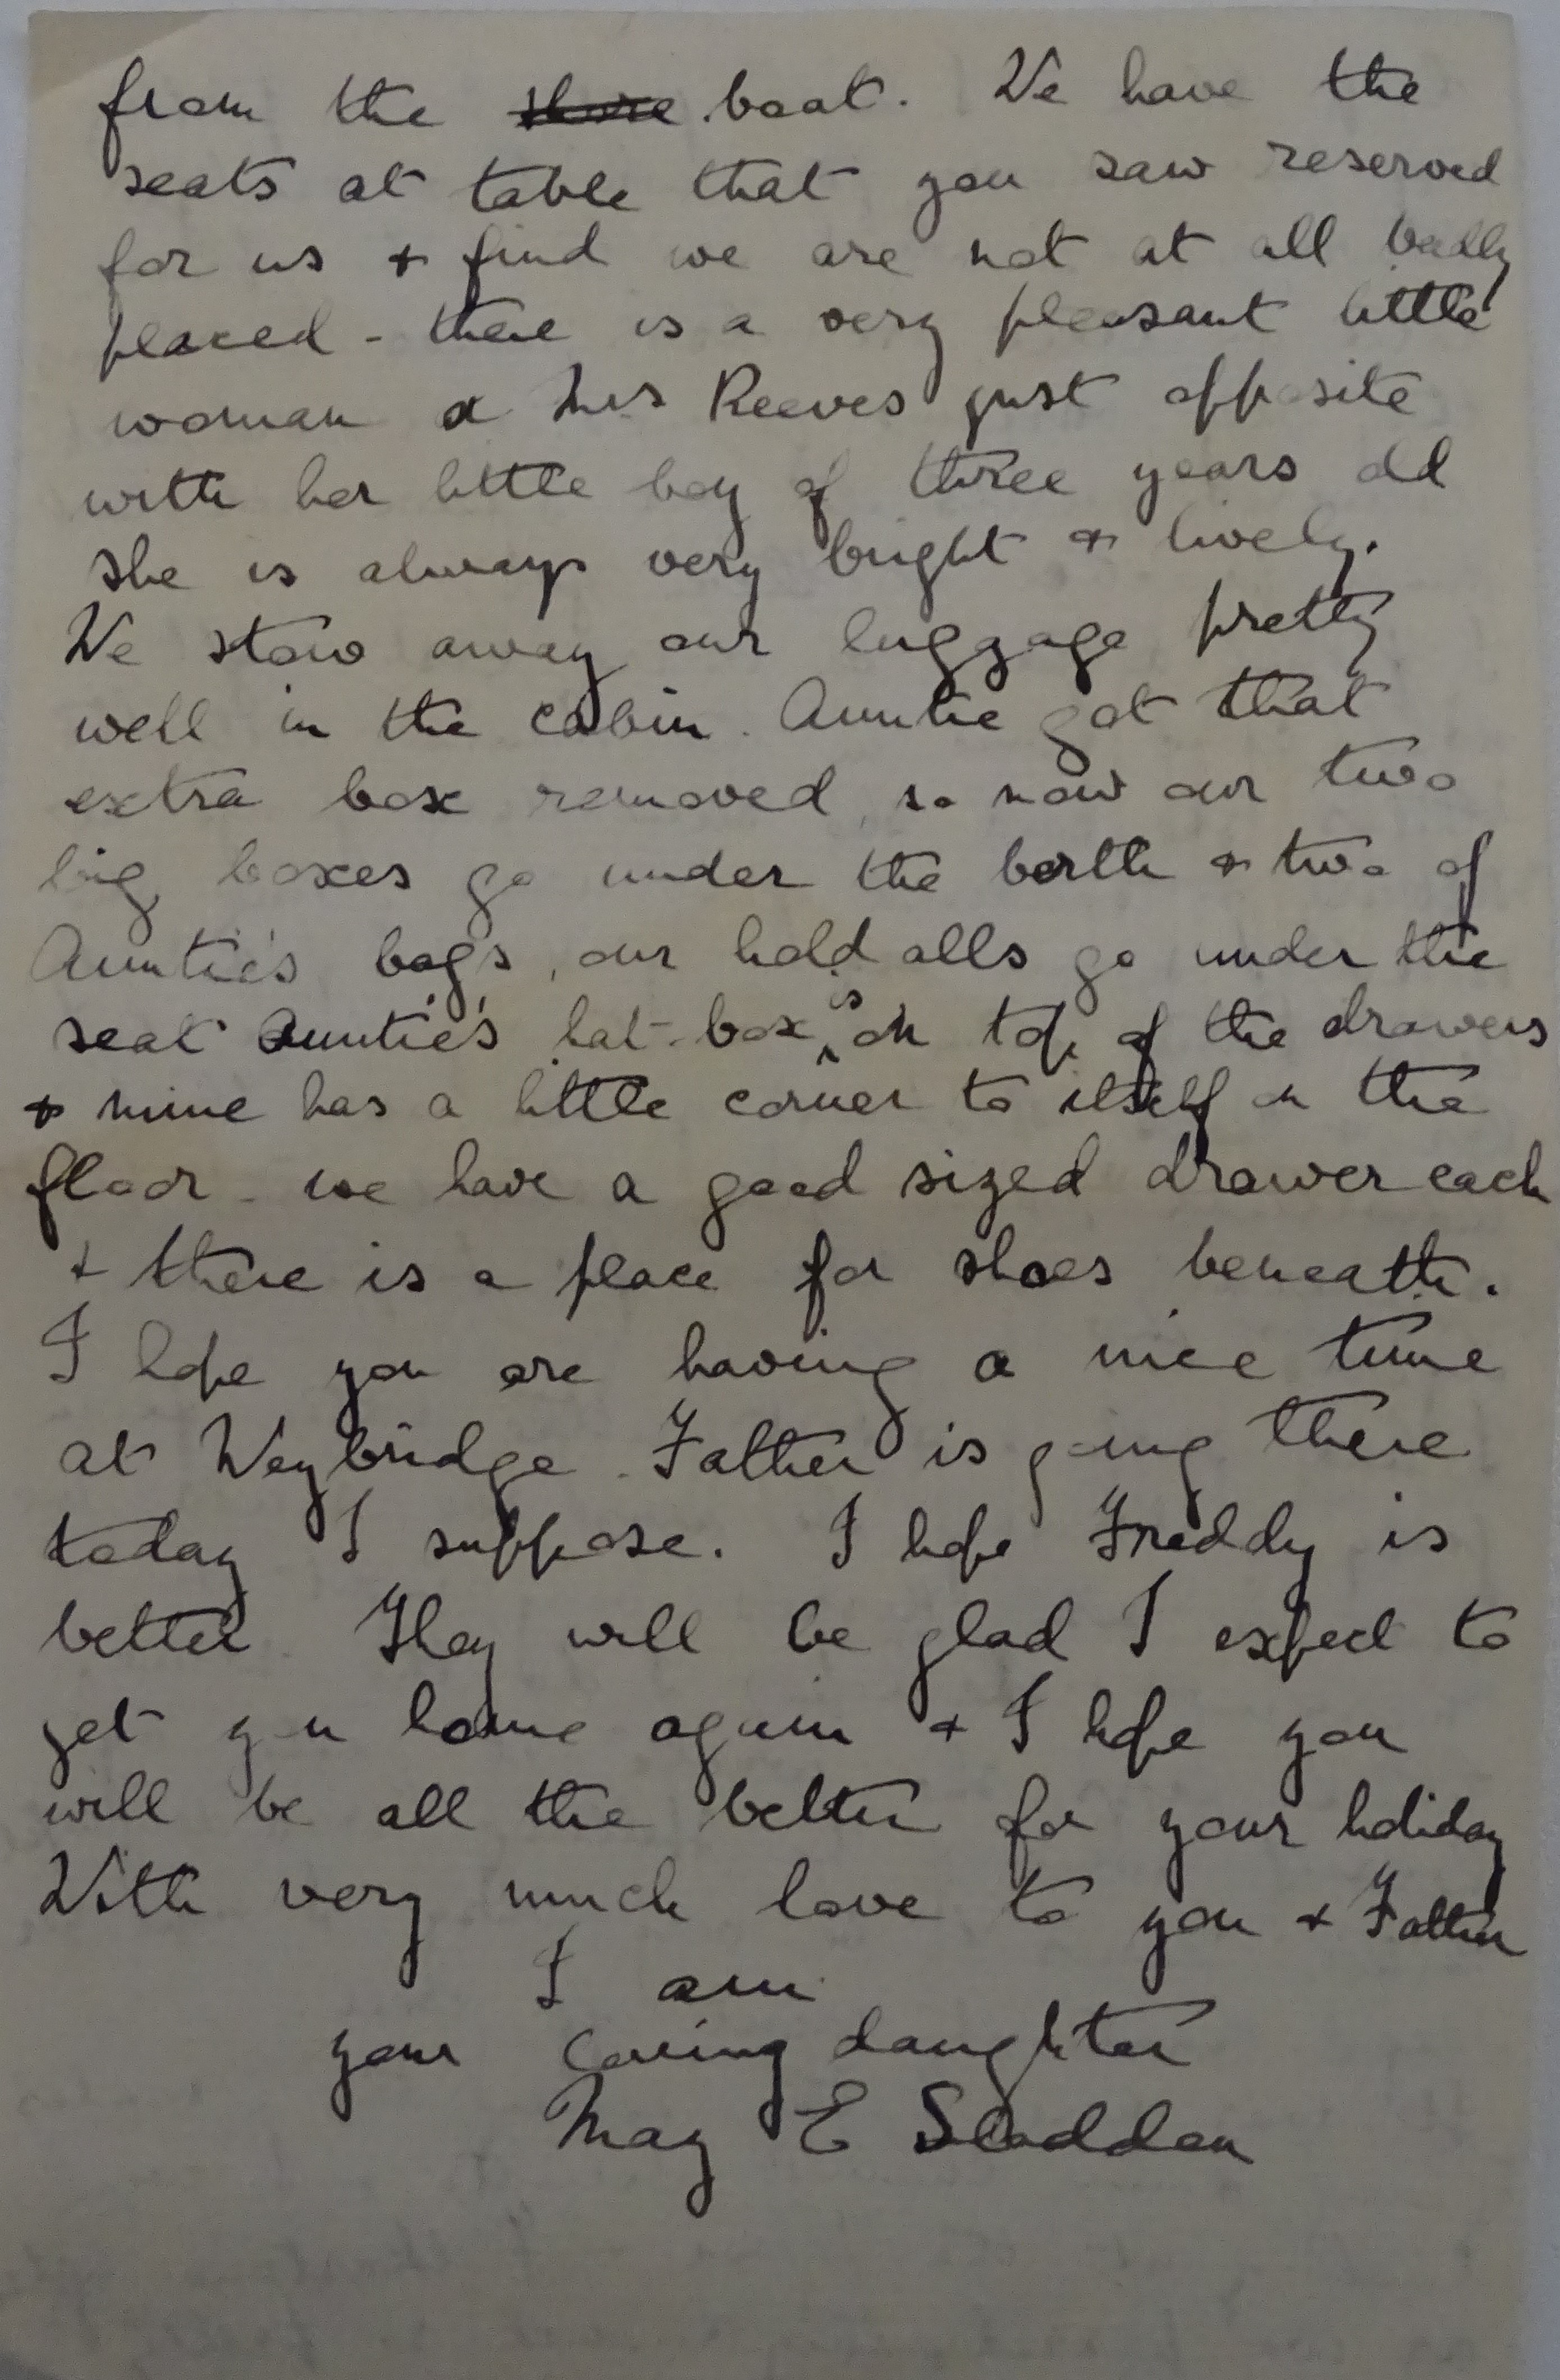 from the shore boat. We have the
seats at table that you saw reserved
for us + find we are not at all badly
placed - there is a very pleasant little
woman a Mrs Reeves just opposite
with her little boy of three years old
She is always very bright + lively.
We stow away our luggage pretty
well in the cabin. Auntie got that
extra box removed, so now our two
big boxes go under the berth + two of
Auntie's bags, our hold alls go under the
seat Auntie's hat-box is on top of the drawers
+ mine has a little corner to itself on the
floor - we have a good sized drawer each
+ there is a place for shoes beneath.
I hope you are having a nice time
at Weybridge. Father is going there
today I suppose. I hope Freddy is
better. They will be glad I expect to
get you home again + I hope you
will be all the better for your holiday
With very much love to you + Father
I am
your loving daughter
May E Sladden